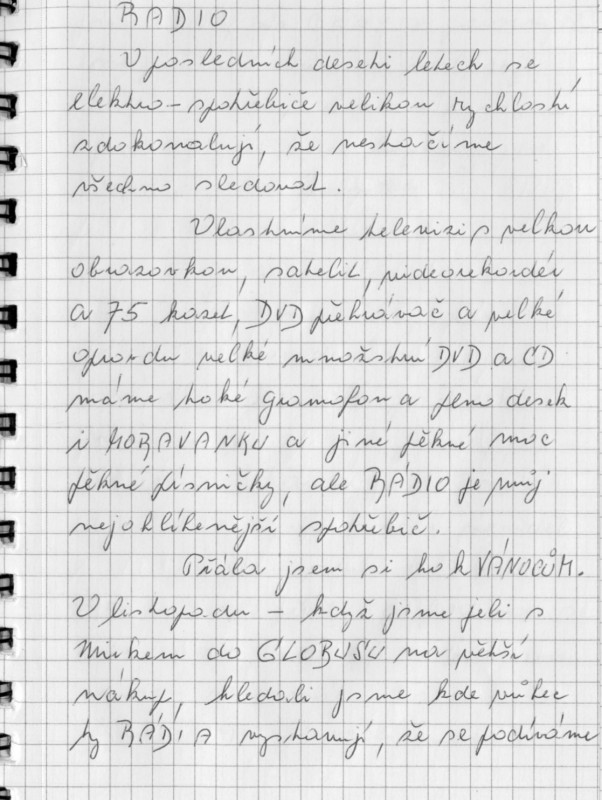 RÁDIO
V posledních deseti letech se
elektro-spotřebiče velikou rychlostí
zdokonalují, že nestačíme
všechno sledovat.
Vlastníme televizi s velkou
obrazovkou, satelit, videorekordér
a 75 kazet, DVD přehrávač a velké
opravdu velké množství DVD a CD
máme také gramofon a plno desek
i MORAVANKU a jiné pěkné moc
pěkné písničky, ale RÁDIO je můj
nejoblíbenější spotřebič.
Přála jsem si ho k VÁNOCŮM.
V listopadu – když jsme jeli s
Mirkem do GLOBUSU na větší
nákup, hledali jsme kde vůbec
ty RÁDIA vystavují, že se podíváme